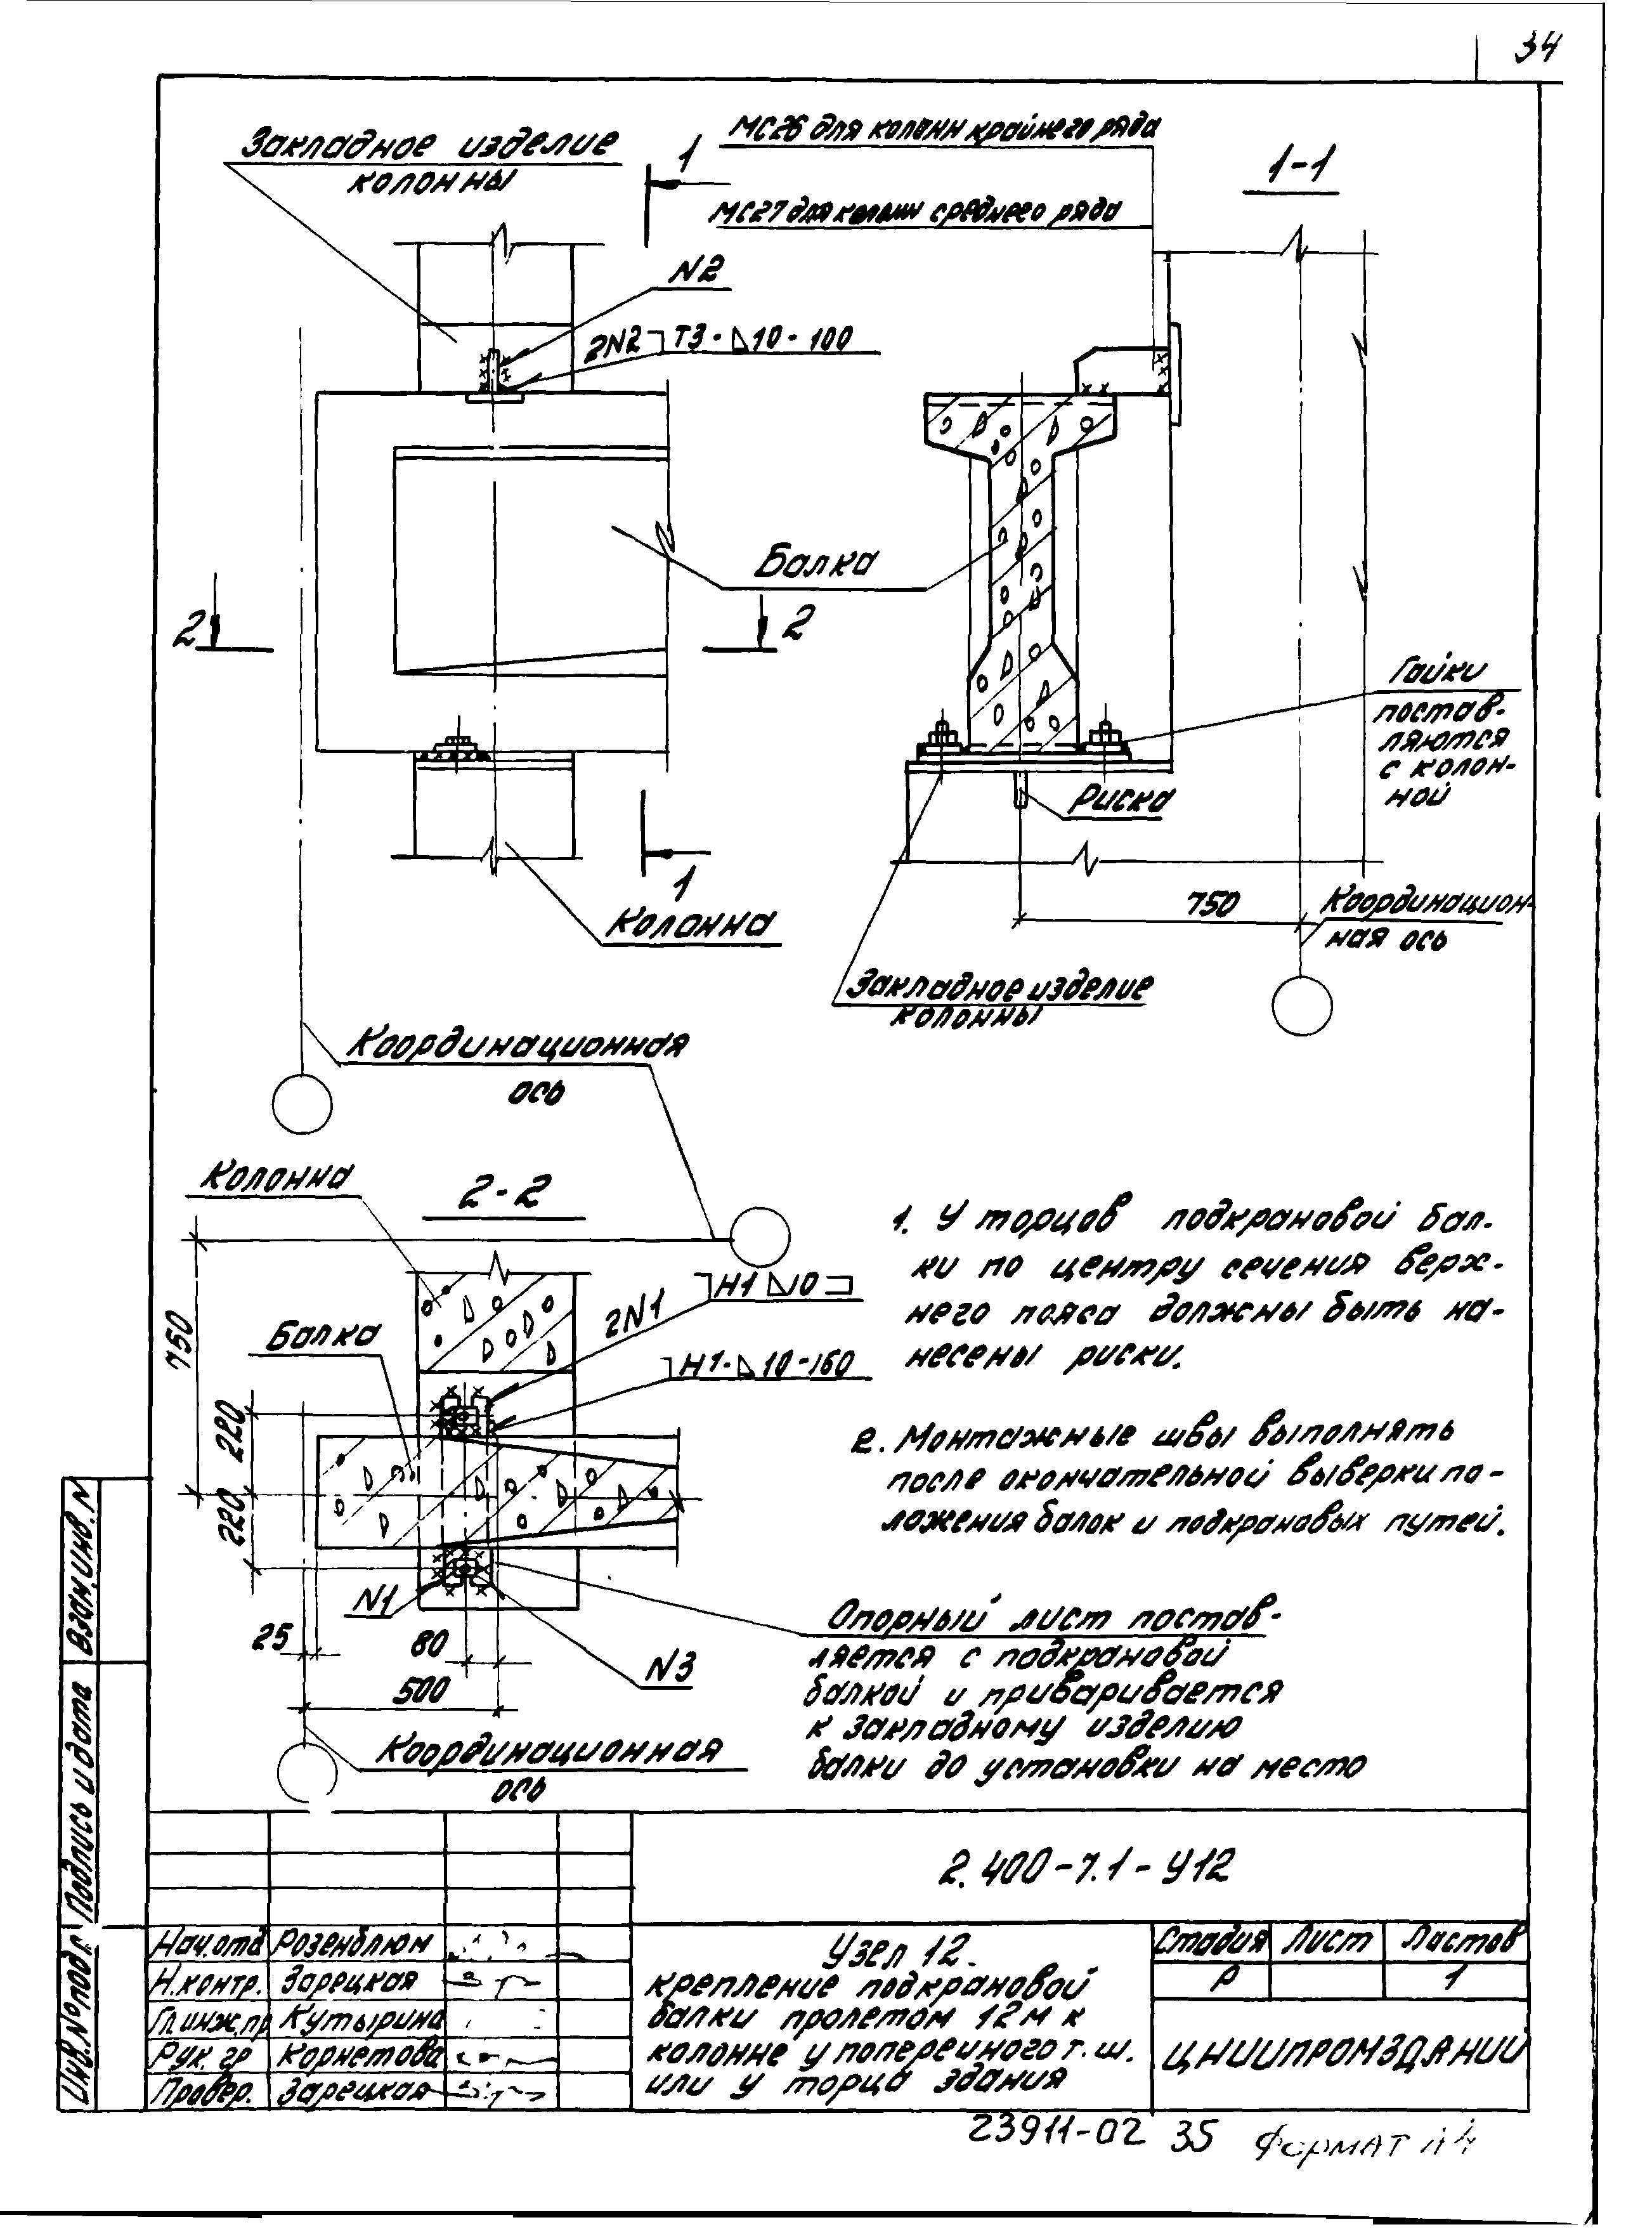 34
Закладное изделие
колонны
1
МС26 для колонн крайнего ряда
1-1
МС27 для колонн среднего ряда
N2
2N2 Т3-⊿10-100
Балка
2
2
Гайки
постав-
ляются
с колон-
ной
Риска
1
Колонна
750
Координацион-
ная ось
Закладное изделие
колонны
Координационная
ось
Колонна
2-2
1. У торцов подкрановой бал-
ки по центру сечения верх-
него пояса должны быть на-
несены риски.
Н1 ⊿10
2N1
Балка
Н1-⊿10-160
750
220
220
2. Монтажные швы выполнять
после окончательной выверки по-
ложения балок и подкрановых путей.
N1
25
80
N3
500
Опорный лист постав-
ляется с подкрановой
балкой и приваривается
к закладному изделию
балки до установки на место
Координационная
ось
Взам.инв.N
Подпись и дата
Инв.№подл
2.400-7.1-У12
Нач.отд Розенблюм
Н.контр. Зарецкая
Гл.инж.пр Кутырина
Рук. гр Корнетова
Провер. Зарецкая
Узел 12.
крепление подкрановой
балки пролетом 12м к
колонне у поперечного т.ш.
или у торца здания
Стадия Лист Листов
Р 1
ЦНИИПРОМЗДАНИЙ
23911-02 35 Формат А4